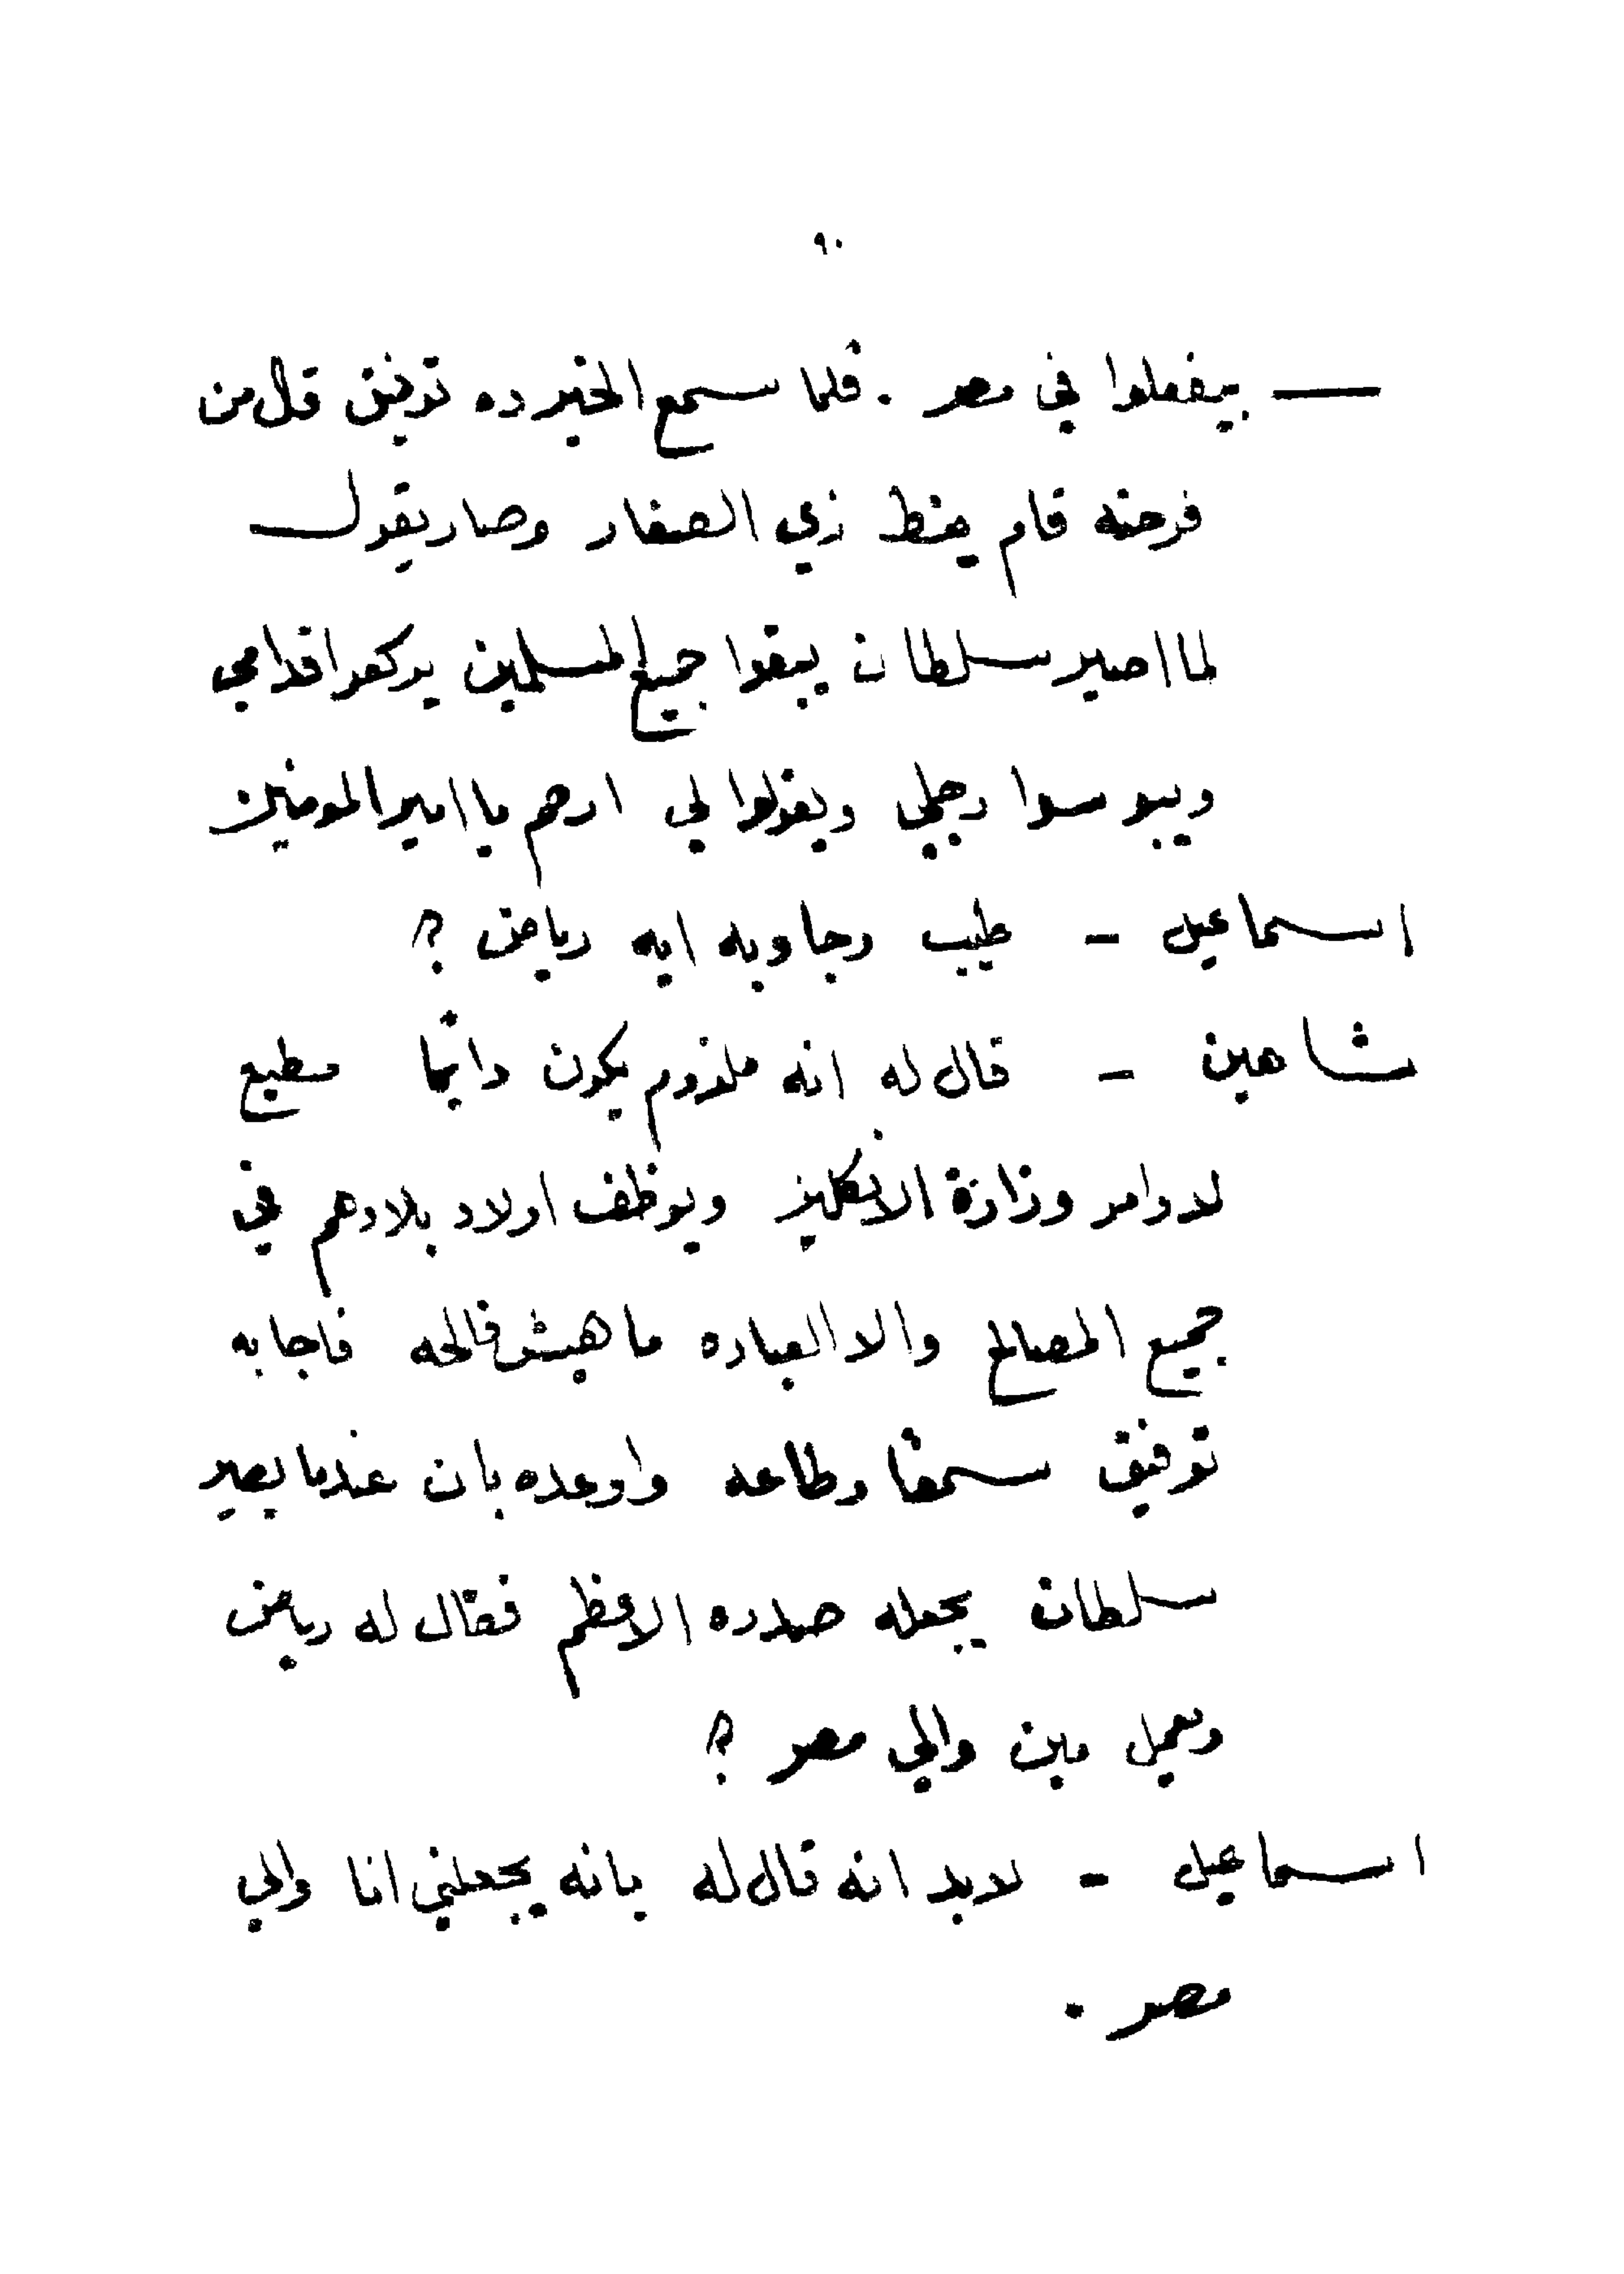 ٩٠
— بيفعلوا في مصر . فلما سمع الخبر ده توفيق قل من
فرحته قام ينط زي الصغار وصار يقول
لما اصير سلطان يبقوا جميع المسلمين يركعوا قدامي
ويبوسوا رجلي ويقولوا لي ارحم يا امير المومنين
اسماعيل – طيب وجاوبه ايه رياض ؟
شاهين – قال له انه ملزوم يكون دائما مطيع
لاوامر وزارة الانكليز ويوظف اولاد بلادهم في
جميع المصالح والا العباره ما هيش فالحه فاجابه
توفيق سمعًا وطاعه واوعده بان عندما يصير
سلطان يجعله صدره الاعظم فقال له رياض
وتعمل مين والي مصر ؟
اسماعيل – لابد انه قال له بانه يجعلني انا والي
مصر .